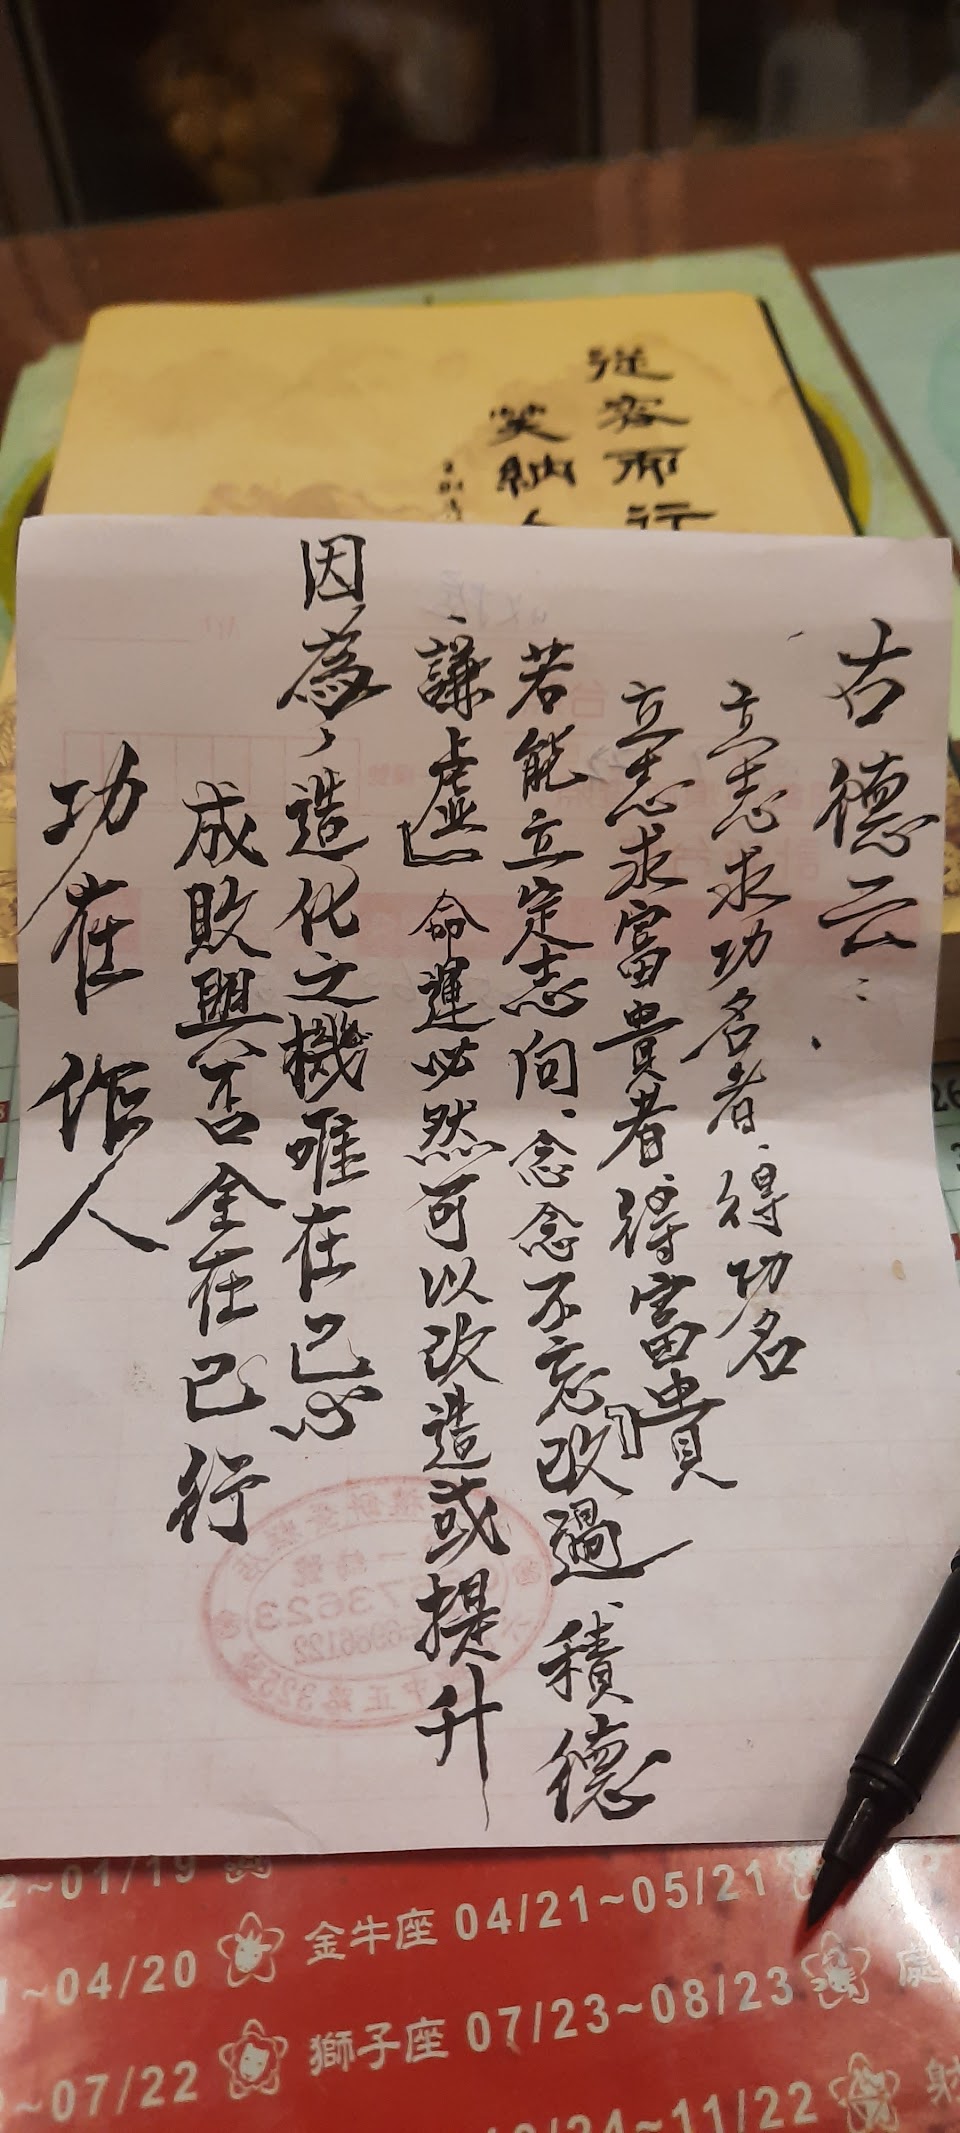 古德云：
立志求功名者、得功名
立志求富貴者、得富貴
若能立定志向、念念不忘「改過、積德
、謙虛」命運必然可以改造或提升
因為，造化之機唯在己心
成敗與否全在己行
功在作人
從容而行
笑納
26
01/19
04/20
金牛座 04/21~05/21
~07/22
獅子座 07/23~08/23
11/22